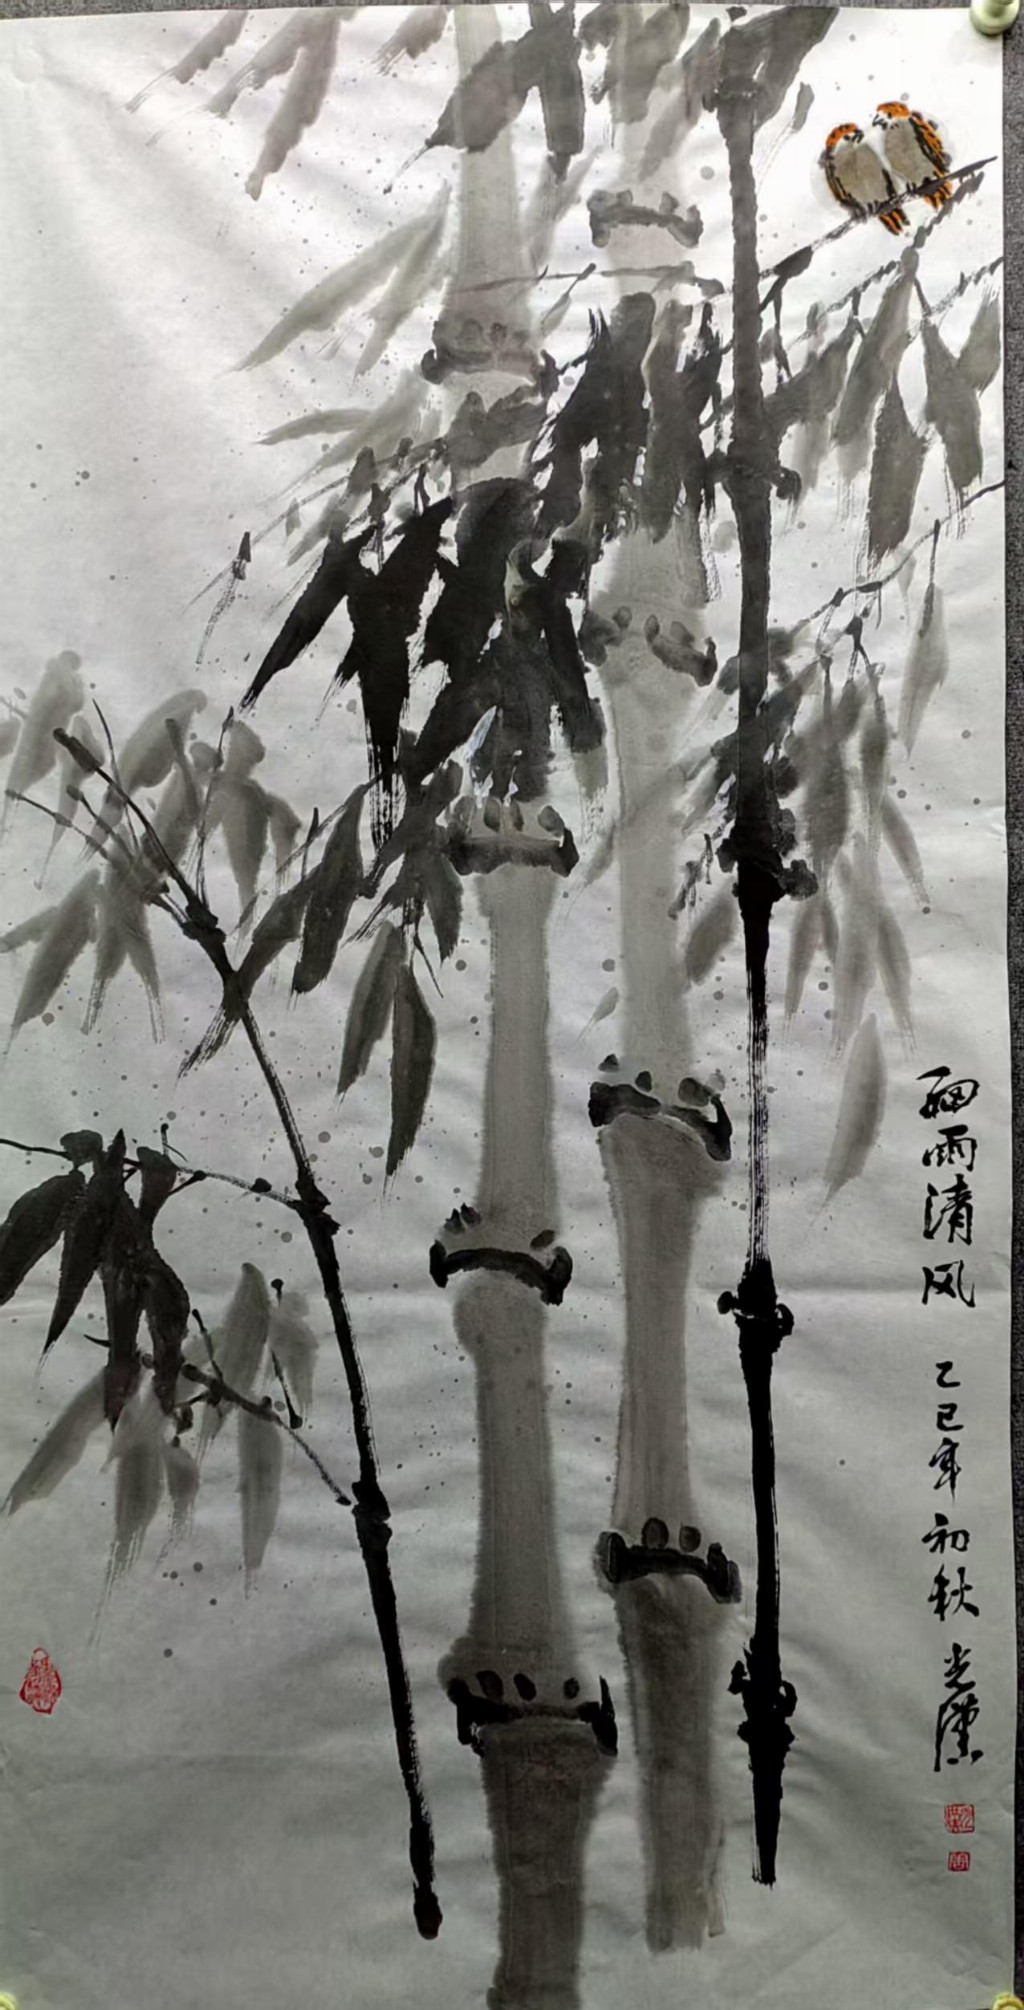 细雨清风
乙巳年
初秋
光汉